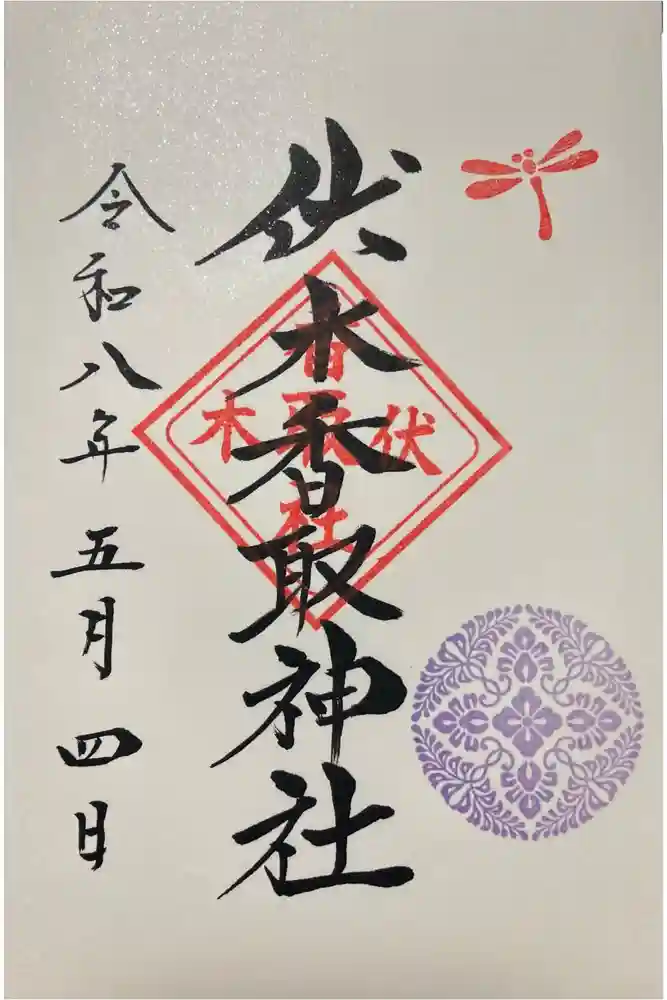 伏木香取神社
伏木
香取
社
令和八年五月四日